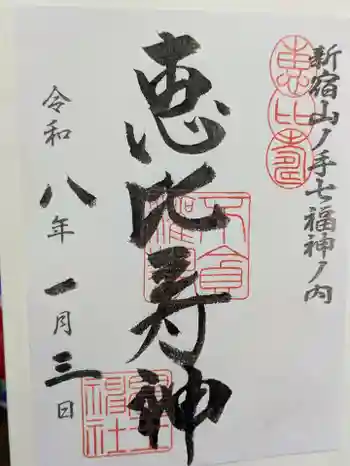 新宿山ノ手七福神ノ内
恵比寿
恵比寿神
令和八年一月三日